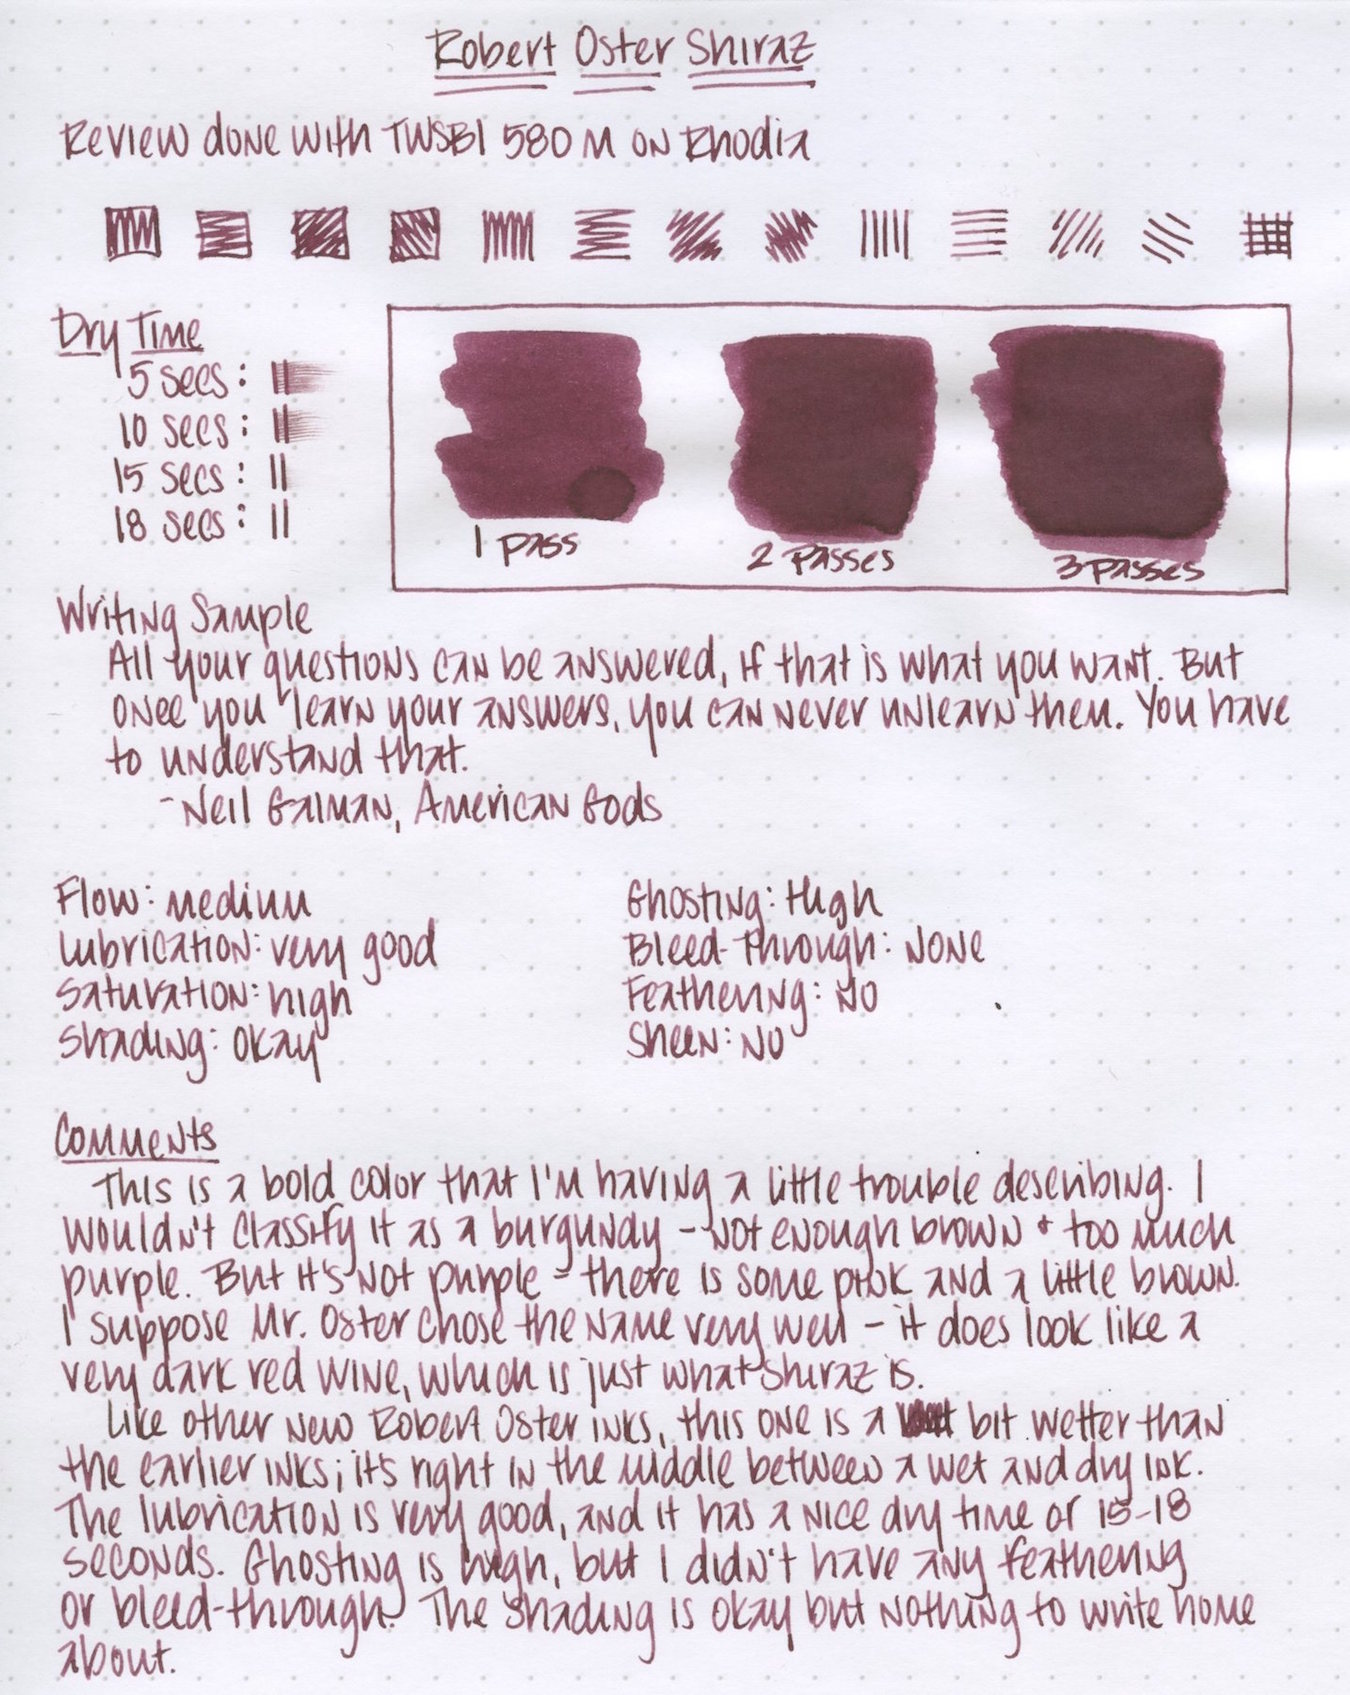 Robert Oster Shiraz
Review done with TWSBI 580 M on Rhodia
Dry Time
5 secs:
10 secs:
15 secs:
18 secs:
1 pass
2 passes
3 passes
Writing Sample
All your questions can be answered, if that is what you want. But
once you learn your answers, you can never unlearn them. You have
to understand that.
-Neil Gaiman, American Gods
Flow: medium
Lubrication: very good
Saturation: high
Shading: okay
Ghosting: High
Bleed-Through: None
Feathering: No
Sheen: No
Comments
This is a bold color that I'm having a little trouble describing. I
wouldn't classify it as a burgundy - not enough brown + too much
purple. But it's not purple - there is some pink and a little brown.
I suppose Mr. Oster chose the name very well - it does look like a
very dark red wine, which is just what shiraz is.
Like other new Robert Oster inks, this one is a bit wetter than
the earlier inks; it's right in the middle between a wet and dry ink.
The lubrication is very good, and it has a nice dry time of 15-18
seconds. Ghosting is high, but I didn't have any feathering
or bleed-through. The shading is okay but nothing to write home
about.